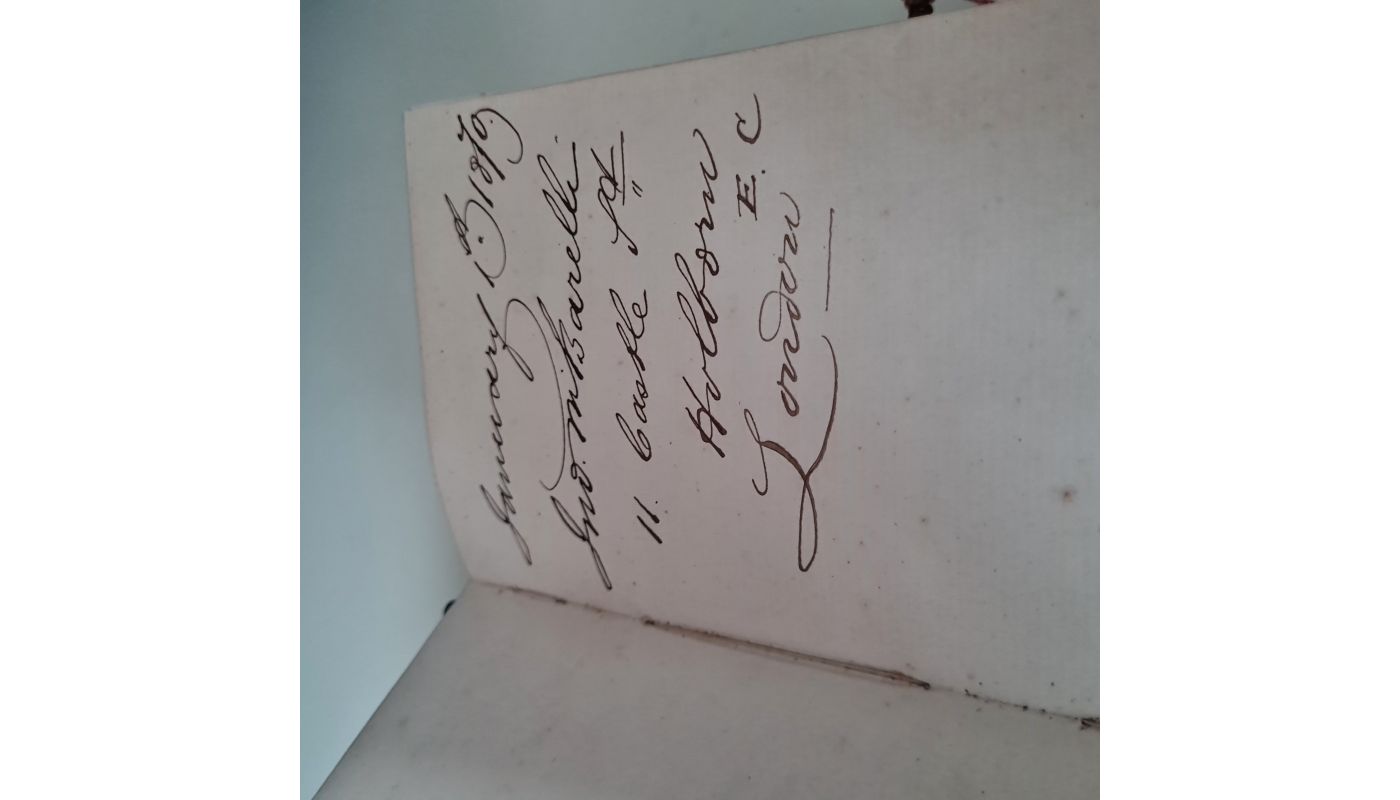 January 1st 1879
Jno. M. Barelli
11. Castle St
Holborn
London E.C